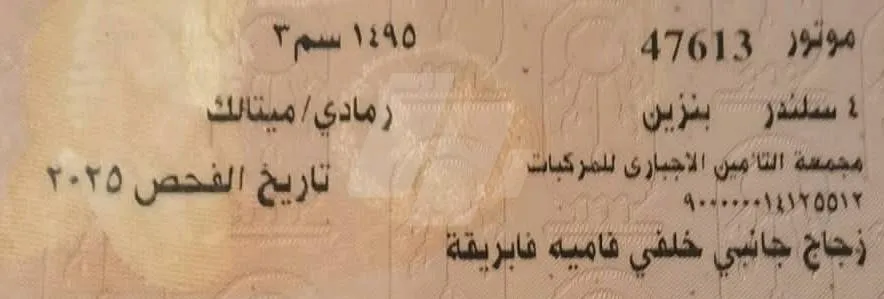 موتور 47613 ١٤٩٥ سم٣
٤ سلندر بنزين رمادي/ميتالك
مجمعة التأمين الاجبارى للمركبات
تاريخ الفحص ٢٠٢٥
٩٠٠٠٠٠٠١٤١٢٥٥١٢
زجاج جانبي خلفي فاميه فابريقة